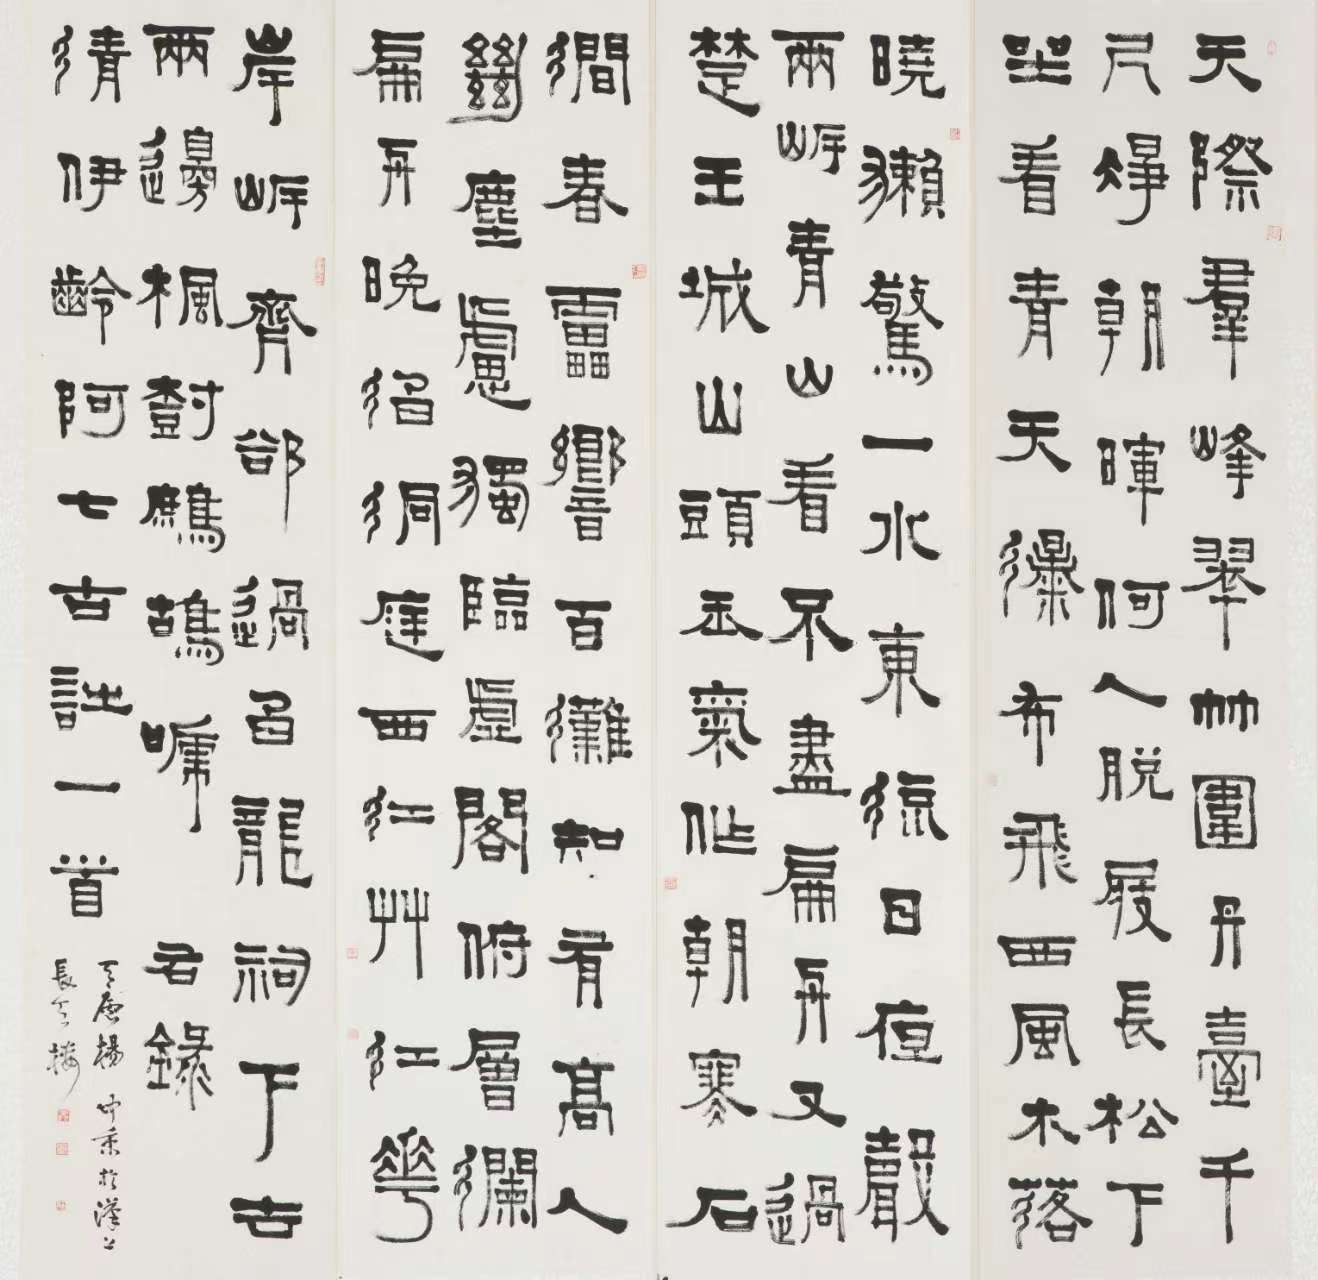 天際羣峰翠竹圍丹臺千
尺竫朝暉何人脫屐長松下
坐看青天瀑布飛西風木落
曉獺驚一水東流日夜聲
兩岸青山看不盡扁舟又過
楚王城山頭玉氣作朝寒石
澗春靁響百灘知有高人
𢇍塵慮獨臨虛閣俯層瀾
扁舟晚泊洞庭西江艸江花
岸岸齊卻過白龍祠下去
兩邊楓樹鷓鴣嗁 右錄
清伊齡阿七古詩一首
楊 於漢上
長